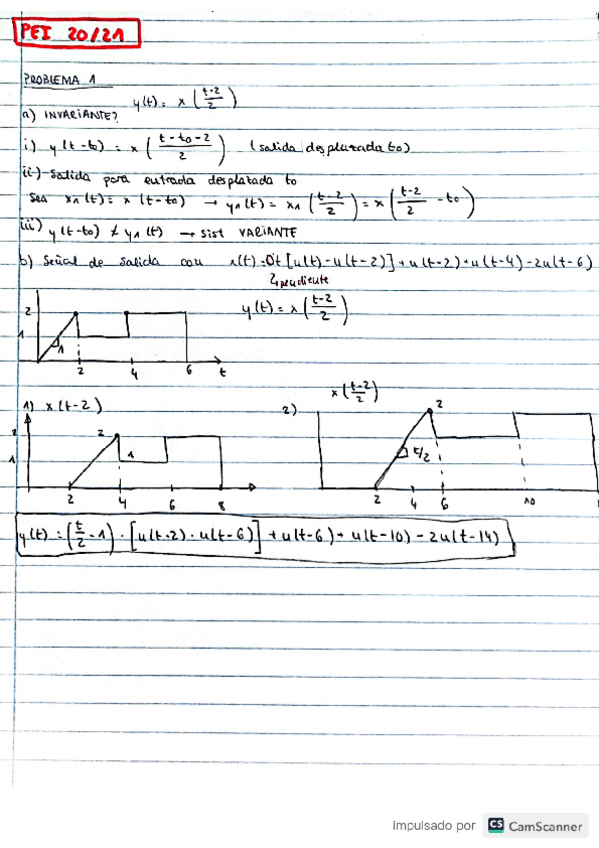 PEI 20/21
PROBLEMA 1
y(t) = x(t-2/2)
a) INVARIANTE?
i) y(t-to) = x(t-to-2/2) (salida desplazada to)
ii-)-Salida para entrada desplazada to
Sea x1(t) = x(t-to) → y1(t) = x1(t-2/2) = x(t-2/2 - to)
iii) y(t-to) ≠ y1(t) → sist VARIANTE
b) Señal de salida con x(t) = t[u(t)-u(t-2)]+u(t-2)+u(t-4)-2u(t-6)
pendiente
y(t) = x(t-2/2)
2
1
1
2 4 6 t
1) x(t-2)
2) x(t-2/2)
2
1
2
1
2 4 6 8
2
t/2
2 4 6 10
y(t) = (t/2 - 1) · [u(t-2) - u(t-6)] + u(t-6) + u(t-10) - 2u(t-14)
Impulsado por CS CamScanner